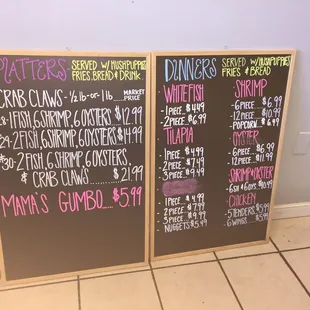 PLATTERS SERVED W/ HUSHPUPPIES
FRIES, BREAD & DRINK.
CRAB CLAWS - 1/2 lb - or 1 lb MARKET PRICE
1 FISH, 6 SHRIMP, 6 OYSTERS $12.99
2 FISH, 6 SHRIMP, 6 OYSTERS $14.99
2 FISH, 6 SHRIMP, 6 OYSTERS,
& CRAB CLAWS $21.99
MAMA'S GUMBO... $5.99
DINNERS SERVED W/ HUSHPUPPIES
FRIES & BREAD
WHITEFISH
- 1 PIECE $4.49
- 2 PIECE $6.99
TILAPIA
- 1 PIECE $4.99
- 2 PIECE $7.49
- 3 PIECE $9.49
- 1 PIECE $4.99
- 2 PIECE $7.99
- 3 PIECE $9.99
- NUGGETS $5.49
SHRIMP
- 6 PIECE $6.99
- 12 PIECE $10.99
- POPCORN $6.99
OYSTER
- 6 PIECE $6.99
- 12 PIECE $11.99
SHRIMP & OYSTER
- 6 SH & 6 OYS. $10.99
CHICKEN
- 5 TENDERS $5.99
- 6 WINGS $5.99